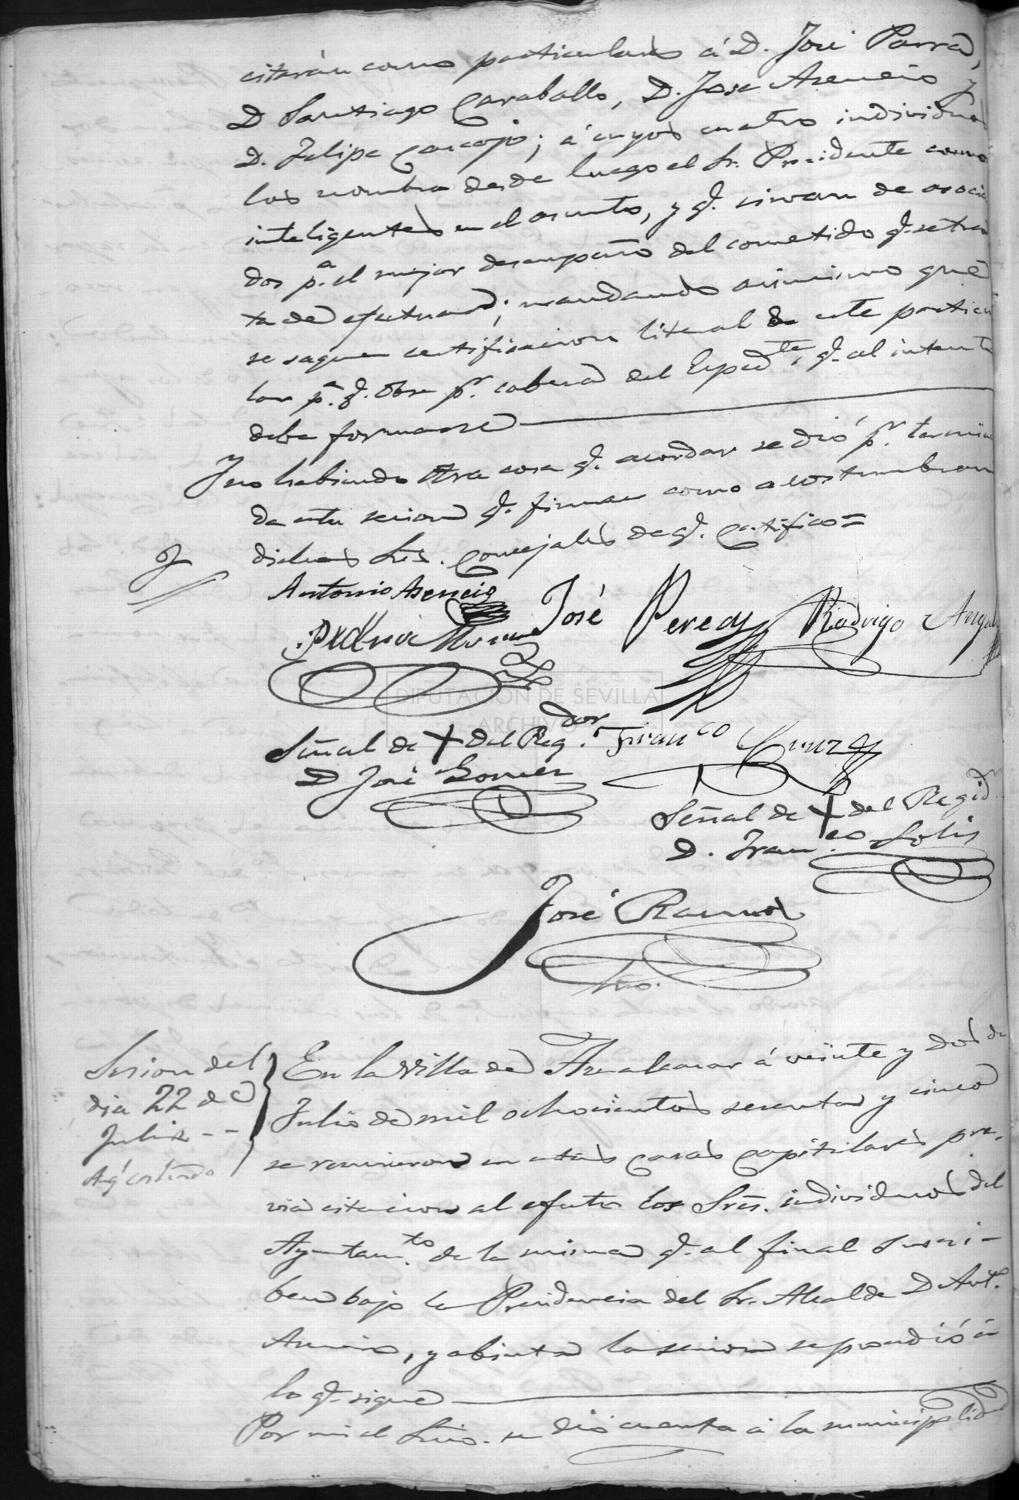 citarán como particulares á D. José Parra,
D Santiago Caraballo, D. Jose Asencio y
D. Felipe ; á cuyos cuatro individuos
los nombra desde luego el Sr. Presidente como
inteligentes en el asunto, y q.e sirvan de asocia
dos p.a el mejor desempeño del cometido q.e se tra
ta de efectuar; mandando asimismo que
se saque certificacion literal de este particu
lar p.a q.e obre p.r cabeza del Exped.te q.e al intento
debe formarse
Y no habiendo otra cosa q.e acordar se dió p.r termina
da esta sesion q.e firman como acostumbran
dichos Sres. Concejales de q.e certifico =
Antonio Asencio
José Perea
Rodrigo
Moreno
DIPUTACIÓN DE SEVILLA
ARCHIVO
Señal de + del Reg.dor
D José Gomez
Fran.co Cruz
Señal de + del Regid.r
D. Fran.co Solis
José Ramos
Srio.
Sesion del
dia 22 de
Julio - -
En la Villa de Aznalcazar á veinte y dos de
Julio de mil ochocientos sesenta y cinco
se reunieron en estas casas capitulares pre-
via citacion al efecto los Sres. individuos del
Ayuntam.to de la misma q.e al final suscri-
ben bajo la Presidencia del Sr. Alcalde D Ant.o
Asencio, y abierta la sesion se procedió á
lo q.e sigue
Por mi el Srio. se dio cuenta á la municipalidad